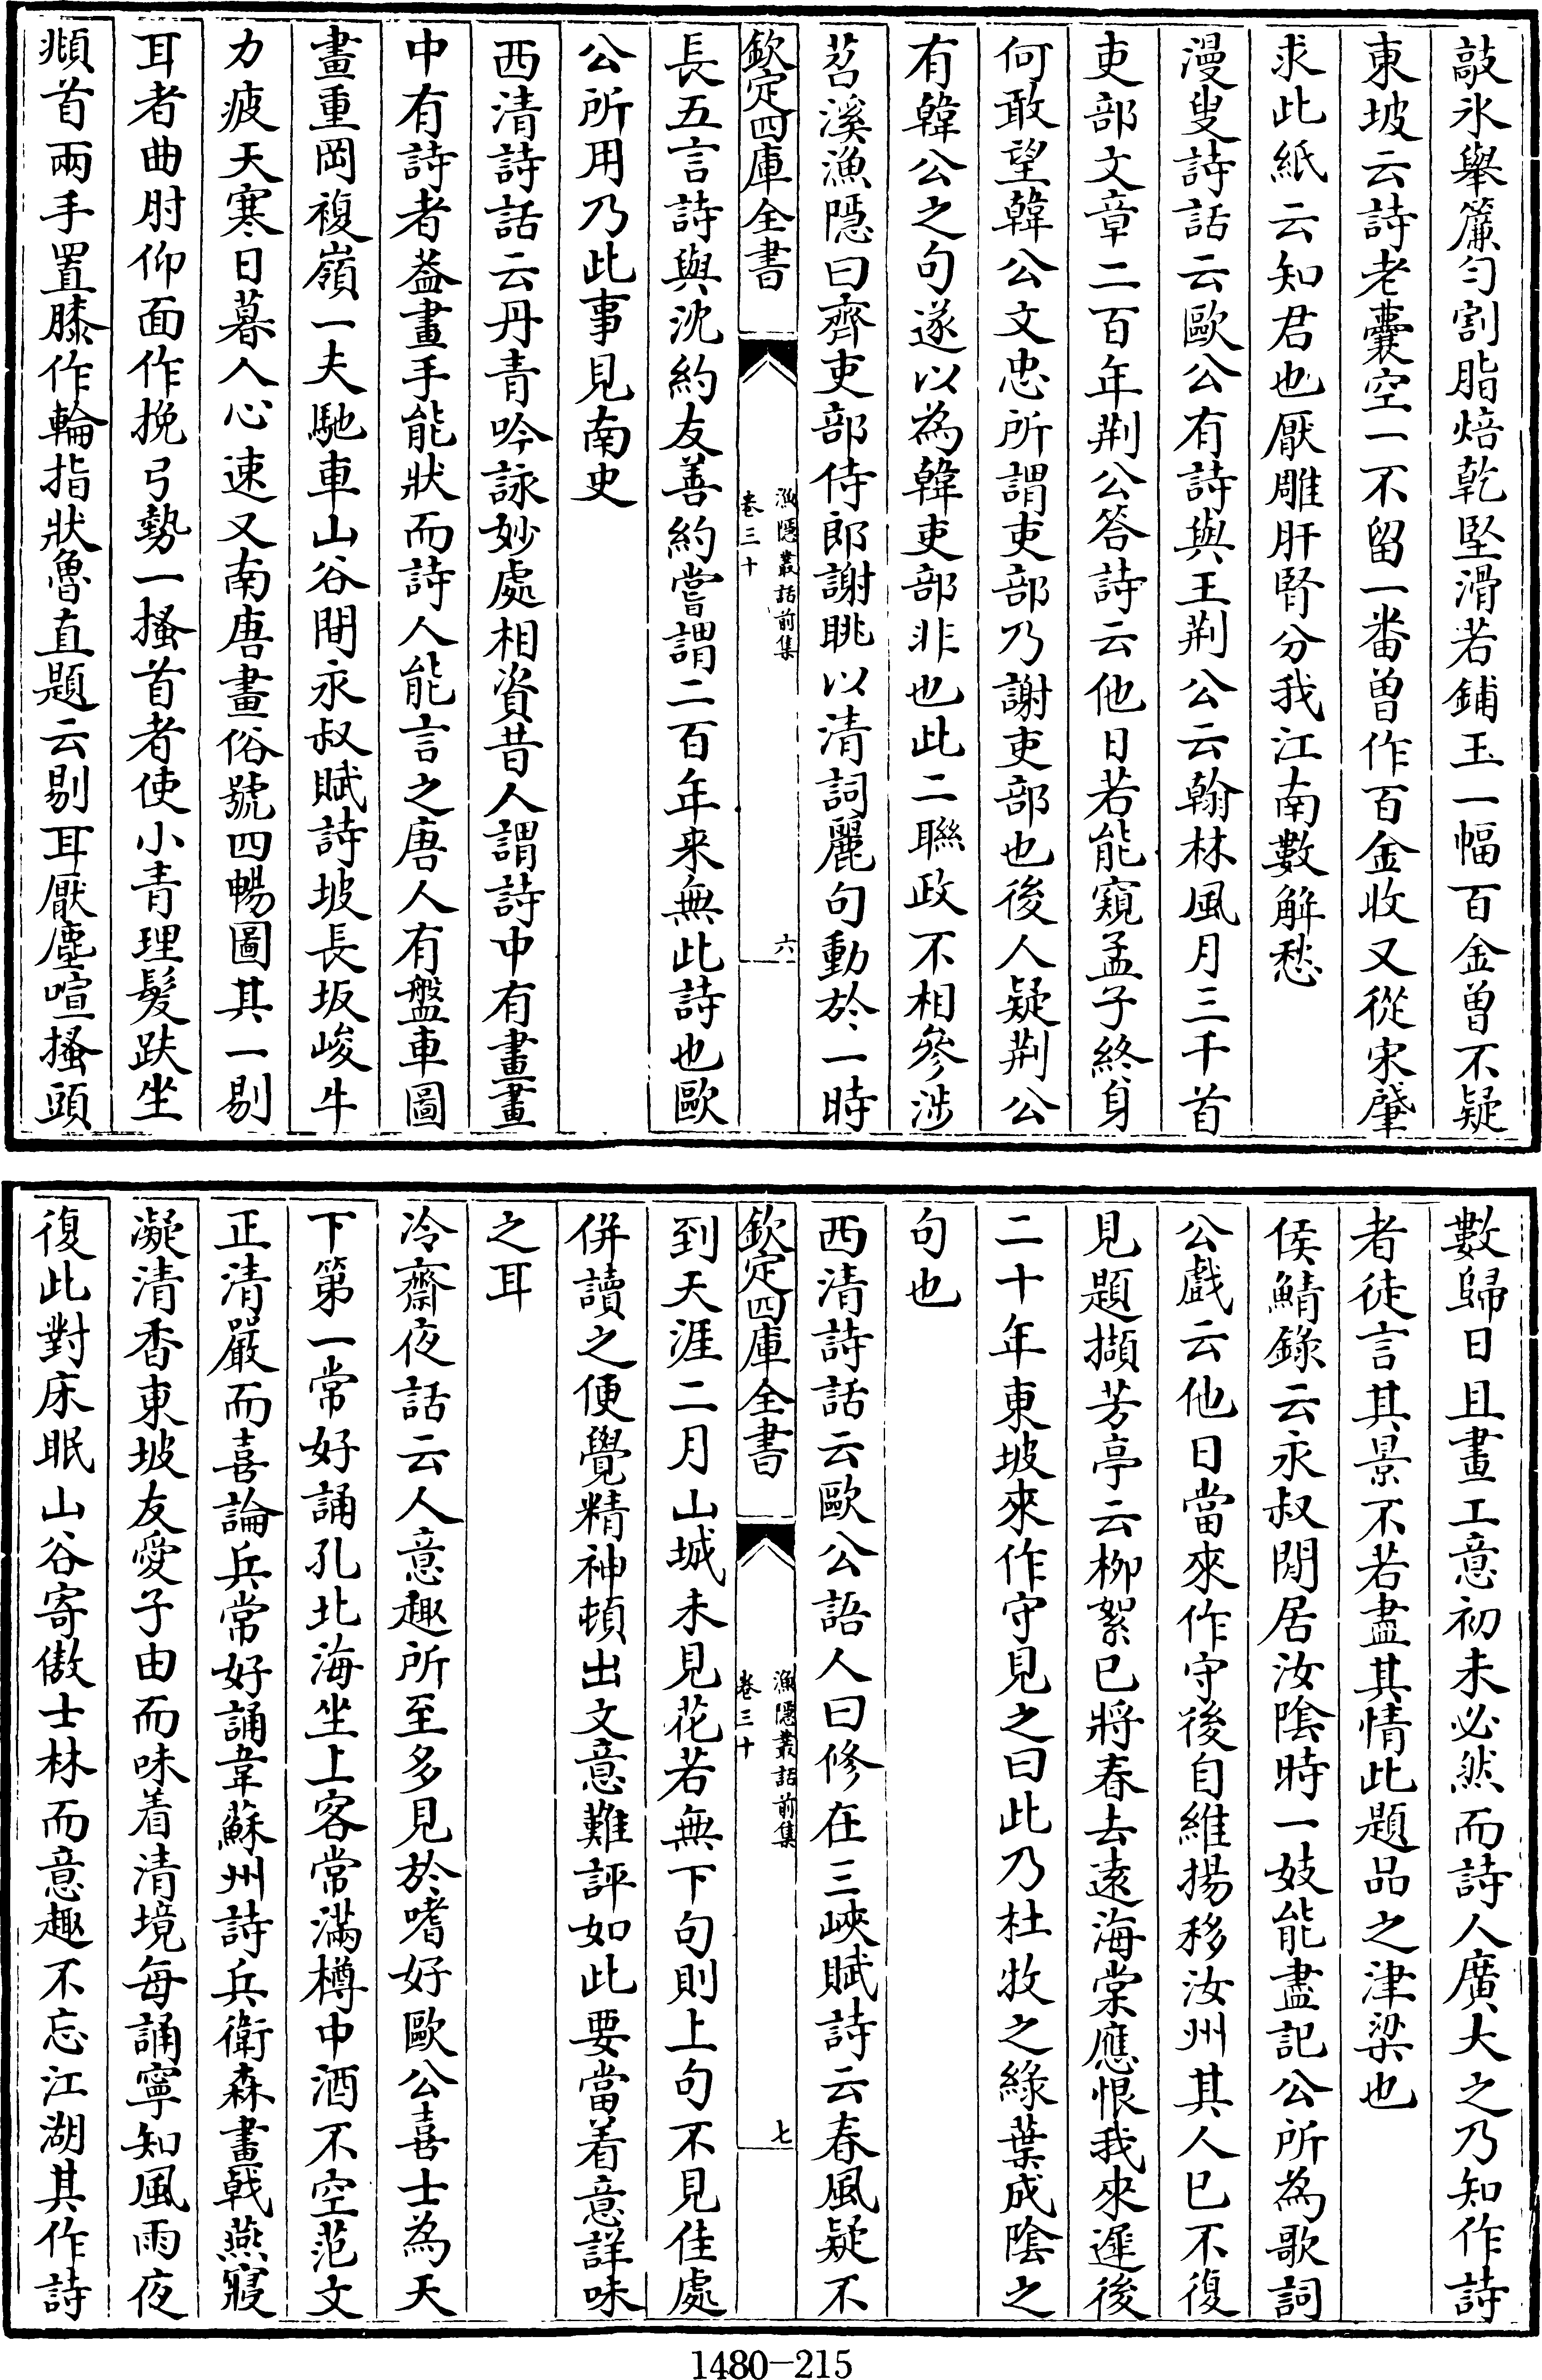 敲氷舉簾勻割脂焙乾堅滑若鋪玉一幅百金曾不疑
東坡云詩老囊空一不留一番曾作百金收又從宋肇
求此紙云知君也厭雕肝腎分我江南數解愁
漫叟詩話云歐公有詩與王荆公云翰林風月三千首
吏部文章二百年荆公答詩云他日若能窺孟子終身
何敢望韓公文忠所謂吏部乃謝吏部也後人疑荆公
有韓公之句遂以為韓吏部非也此二聯政不相參涉
苕溪漁隱曰齊吏部侍郎謝眺以清詞麗句動於一時
欽定四庫全書
漁隱叢話前集
卷三十
六
長五言詩與沈約友善約嘗謂二百年来無此詩也歐
公所用乃此事見南史
西清詩話云丹青吟詠妙處相資昔人謂詩中有畫畫
中有詩者葢畫手能狀而詩人能言之唐人有盤車圖
畫重岡複嶺一夫馳車山谷間永叔賦詩坡長坂峻牛
力疲天寒日暮人心速又南唐畫俗號四暢圖其一剔
耳者曲肘仰面作挽弓勢一搔首者使小青理髮趺坐
頫首兩手置膝作輪指狀魯直題云剔耳厭塵喧搔頭
數歸日且畫工意初未必然而詩人廣大之乃知作詩
者徒言其景不若盡其情此題品之津梁也
侯鯖錄云永叔閒居汝隂時一妓能盡記公所為歌詞
公戲云他日當來作守後自維揚移汝州其人已不復
見題擷芳亭云柳絮已將春去遠海棠應恨我來遲後
二十年東坡來作守見之曰此乃杜牧之綠葉成隂之
句也
西清詩話云歐公語人曰修在三峽賦詩云春風疑不
欽定四庫全書
漁隱叢話前集
卷三十
七
到天涯二月山城未見花若無下句則上句不見佳處
併讀之便覺精神頓出文意難評如此要當着意詳味
之耳
冷齋夜話云人意趣所至多見於嗜好歐公喜士為天
下第一常好誦孔北海坐上客常滿樽中酒不空范文
正清嚴而喜論兵常好誦韋蘇州詩兵衛森畫戟燕寢
凝清香東坡友愛子由而味着清境每誦寧知風雨夜
復此對床眠山谷寄傲士林而意趣不忘江湖其作詩
1480-215